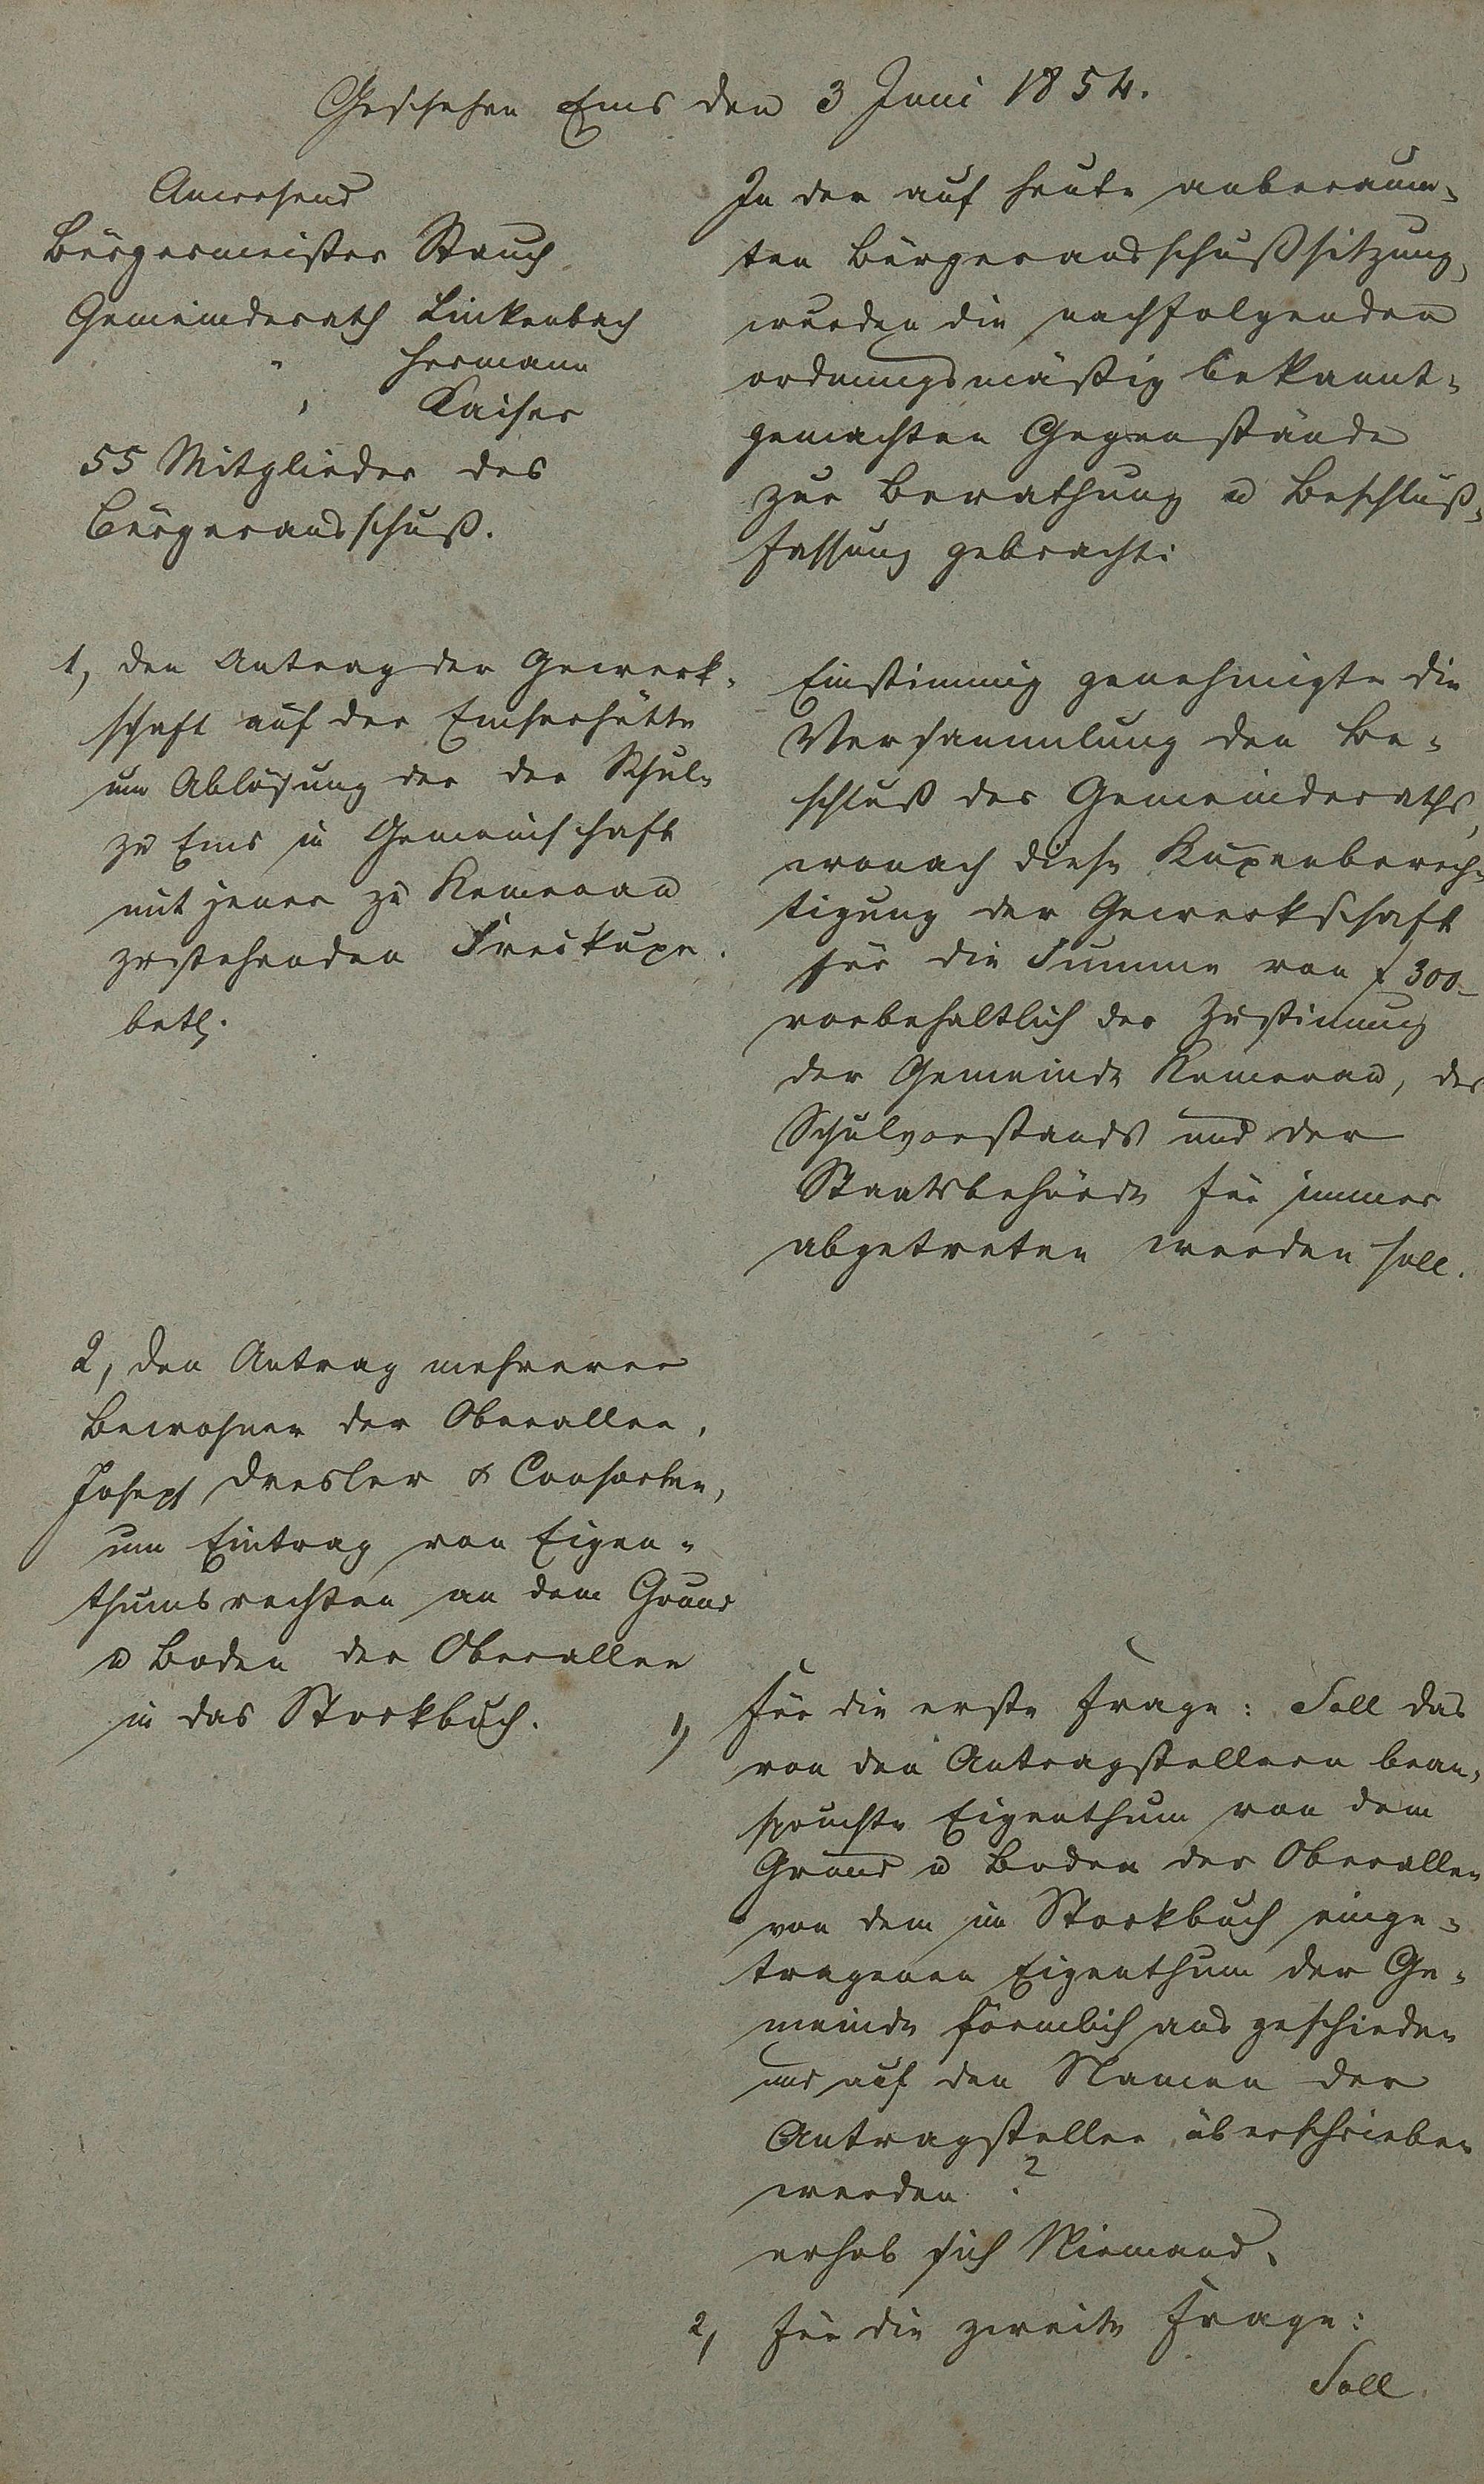 Geschehen Ems den 3 Juni 1854.
Anwesend
Bürgermeister Stauch
Gemeinderath Linkenbach
" Hermann
" Kaiser
55 Mitglieder des
Bürgerausschuß.
In der auf heute anberaum-
ten Bürgerausschußsitzung,
wurden die nachfolgenden
ordnungsmäßig bekannt-
gemachten Gegenstände
zur Berathung u Beschluß-
fassung gebracht:
1, den Antrag der Gewerk-
schaft auf der Emserhütte
um Ablösung der der Schule
zu Ems in Gemeinschaft
mit jener zu Kemenau
zustehenden Freikuxe
betr.
Einstimmig genehmigte die
Versammlung den Be-
schluß des Gemeinderaths,
wonach diese Kuxenberech-
tigung der Gewerkschaft
für die Summe von f 300_
vorbehaltlich der Zustimmung
der Gemeinde Kemenau, des
Schulvorstands und der
Staatsbehörde für immer
abgetreten werden soll.
2, den Antrag mehrerer
Bewohner der Oberallee,
Joseph Dresler & Consorten,
um Eintrag von Eigen-
thumsrechten an dem Grund
u Boden der Oberallee
in das Stockbuch.
1, Für die erste Frage: Soll das
von den Antragstellern bean-
spruchte Eigenthum von dem
Grund u Boden der Oberallee
von dem im Stockbuch einge-
tragenen Eigenthum der Ge-
meinde förmlich aus geschieden
und auf den Namen der
Antragsteller überschrieben
werden?
erhob sich Niemand.
2, Für die zweite Frage:
Soll